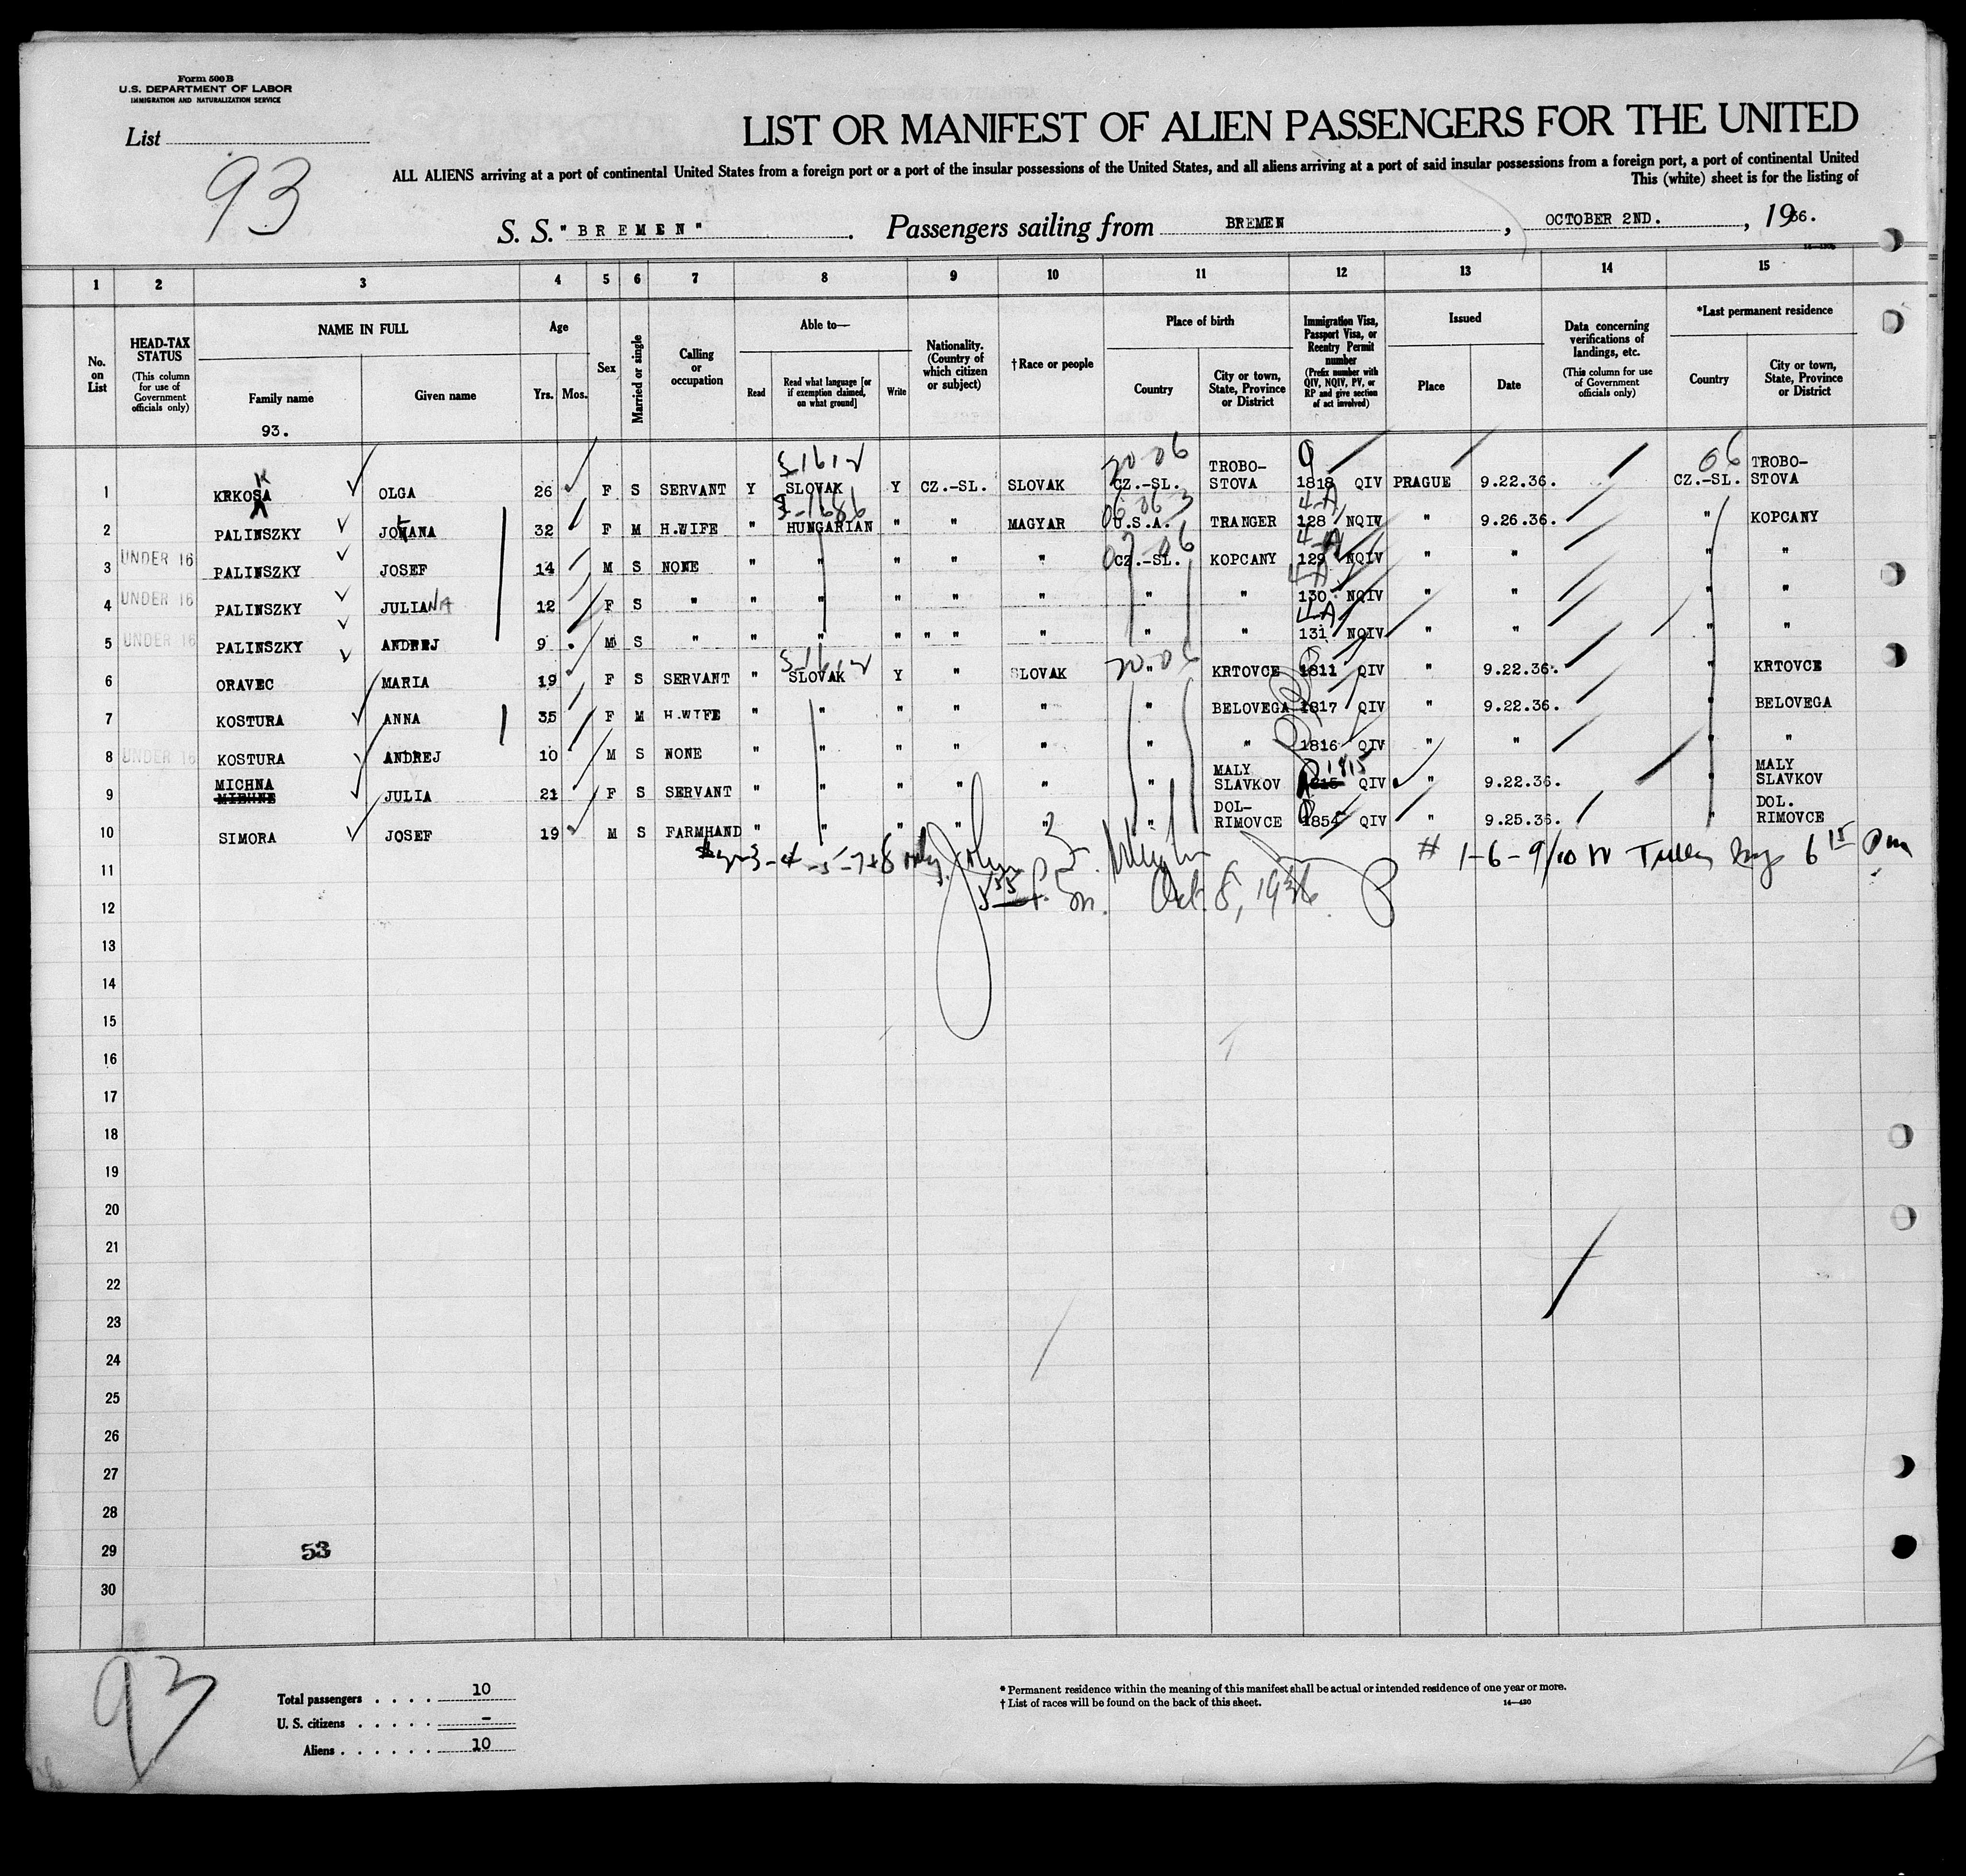 Form 500 B
U.S. DEPARTMENT OF LABOR
IMMIGRATION AND NATURALIZATION SERVICE
List
93
LIST OR MANIFEST OF ALIEN PASSENGERS FOR THE UNITED
ALL ALIENS arriving at a port of continental United States from a foreign port or a port of the insular possessions of the United States, and all aliens arriving at a port of said insular possessions from a foreign port, a port of continental United
This (white) sheet is for the listing of
S. S. "BREMEN". Passengers sailing from BREMEN, OCTOBER 2ND., 1936.
1 2 3 4 5 6 7 8 9 10 11 12 13 14 15
No. on List
HEAD-TAX STATUS (This column for use of Government officials only)
NAME IN FULL
Family name Given name
93.
Age
Yrs. Mos.
Sex
Married or single
Calling or occupation
Able to—
Read
Read what language [or if exemption claimed, on what ground]
Write
Nationality. (Country of which citizen or subject)
† Race or people
Place of birth
Country
City or town, State, Province or District
Immigration Visa, Passport Visa, or Reentry Permit number (Prefix number with QIV, NQIV, PV, or RP and give section of act involved)
Issued
Place Date
Data concerning verifications of landings, etc. (This column for use of Government officials only)
*Last permanent residence
Country
City or town, State, Province or District
1 KRKOSA K OLGA 26 F S SERVANT Y SLOVAK Y CZ.-SL. SLOVAK CZ.-SL. TROBO-STOVA 1818 QIV PRAGUE 9.22.36. 06 CZ.-SL. TROBO-STOVA
2 PALINSZKY JOHANA 32 F M H.WIFE " HUNGARIAN " " MAGYAR U.S.A. TRANGER 4-A 128 NQIV " 9.26.36. " KOPCANY
3 UNDER 16 PALINSZKY JOSEF 14 M S NONE " " " " " CZ.-SL. KOPCANY 4-A 129 NQIV " " " "
4 UNDER 16 PALINSZKY JULIANA 12 F S " " " " " " " " 4-A 130 NQIV " " " "
5 UNDER 16 PALINSZKY ANDREJ 9 M S " " " " " " " " 4-A 131 NQIV " " " "
6 ORAVEC MARIA 19 F S SERVANT " SLOVAK Y " SLOVAK " KRTOVCE 1811 QIV " 9.22.36. " KRTOVCE
7 KOSTURA ANNA 35 F M H.WIFE " " " " " " BELOVEGA 1817 QIV " 9.22.36. " BELOVEGA
8 UNDER 16 KOSTURA ANDREJ 10 M S NONE " " " " " " " 1816 QIV " " " "
9 MICHNA JULIA 21 F S SERVANT " " " " " " MALY SLAVKOV 1815 QIV " 9.22.36. " MALY SLAVKOV
10 SIMORA JOSEF 19 M S FARMHAND " " " " " " DOL-RIMOVCE 1854 QIV " 9.25.36. " DOL. RIMOVCE
Oct. 8, 1936
# 1-6-9/10 6 15 pm
11
12
13
14
15
16
17
18
19
20
21
22
23
24
25
26
27
28
29 53
30
93
Total passengers . . . . 10
U. S. citizens . . . . . –
Aliens . . . . . . 10
* Permanent residence within the meaning of this manifest shall be actual or intended residence of one year or more.
† List of races will be found on the back of this sheet. 14—430